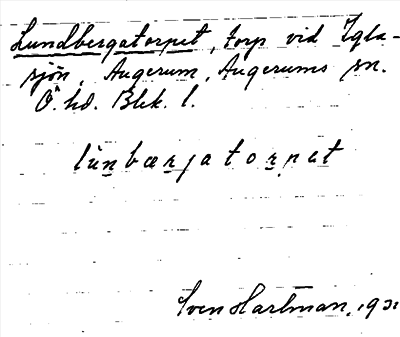 Lundbergatorpet, torp vid Igla-
sjön, Augerum, Augerums sn.
Ö. hd. Blek. l.
lùnbærjatorpat
Sven Hartman, 1931